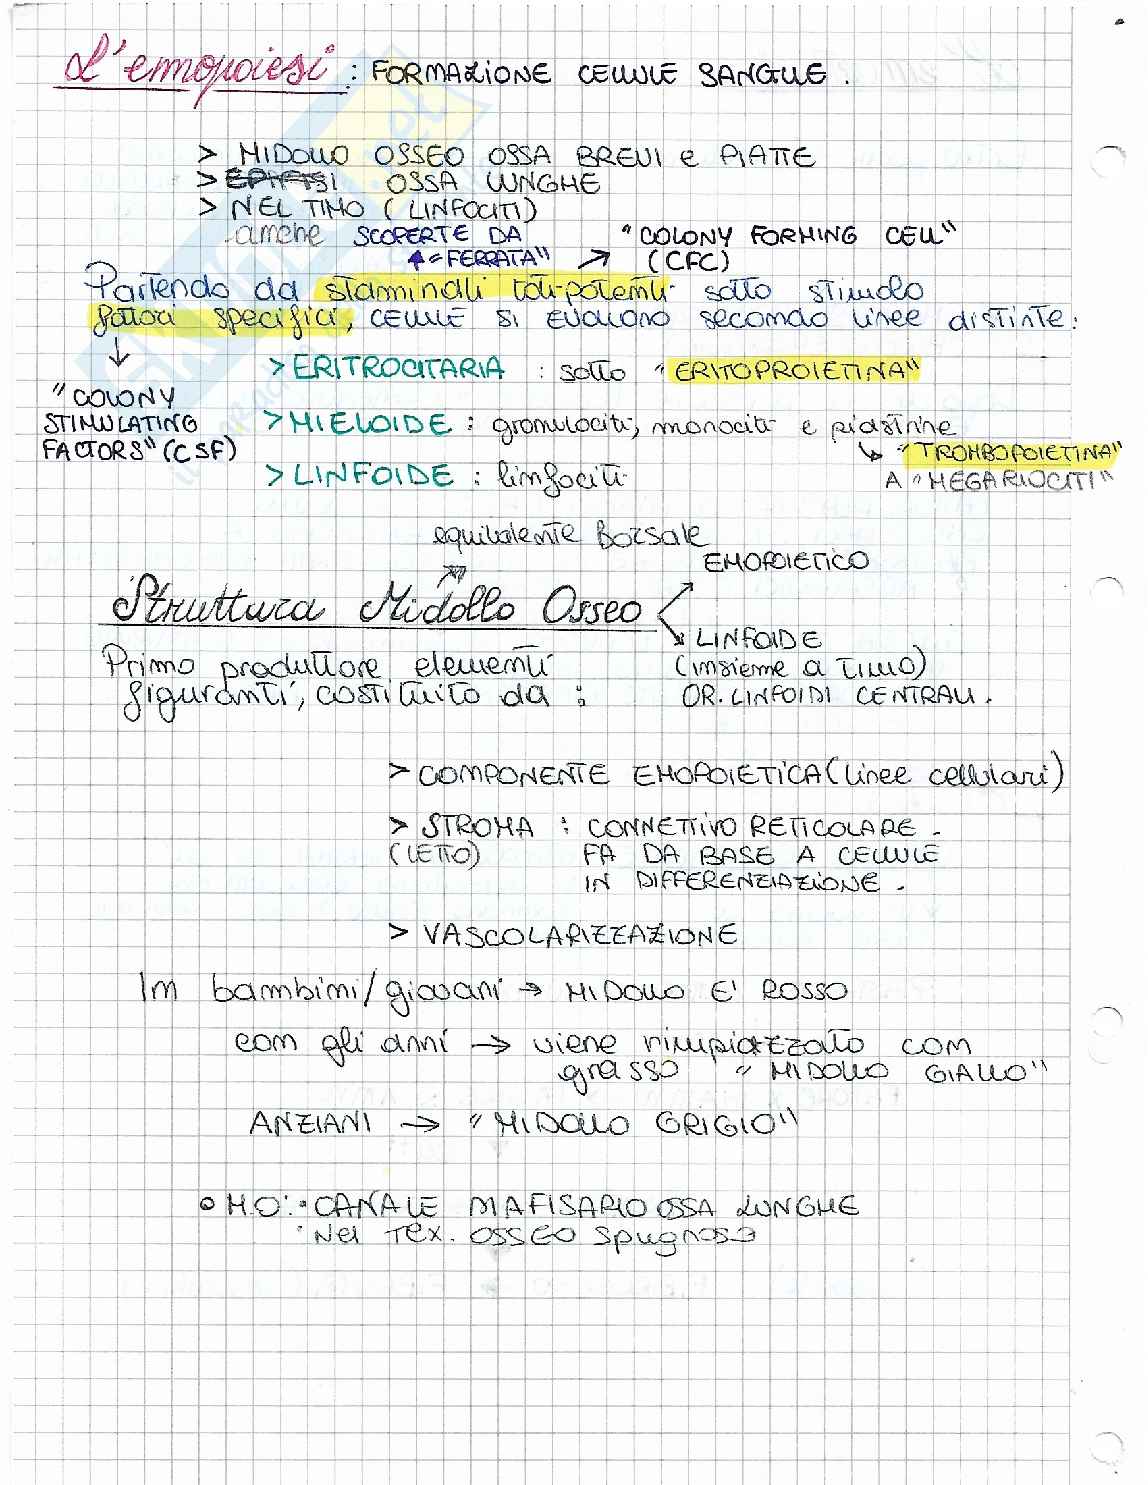 L'emopoiesi : FORMAZIONE CELLULE SANGUE .
> MIDOLLO OSSEO OSSA BREVI e PIATTE
> EPIFISI OSSA LUNGHE
> NEL TIMO ( LINFOCITI)
anche SCOPERTE DA "COLONY FORMING CELL"
"FERRATA" ↗ (CFC)
Partendo da staminali toti-potenti sotto stimolo
fattori specifici, CELLULE SI EVOLVONO secondo linee distinte:
> ERITROCITARIA : sotto "ERITOPROIETINA"
"COLONY
STIMULATING
FACTORS" (CSF)
> MIELOIDE : granulociti, monociti e piastrine
↳ "TROMBOPOIETINA"
A "MEGARIOCITI"
> LINFOIDE : linfociti
equivalente Borsale
EMOPOIETICO
Struttura Midollo Osseo
LINFOIDE
Primo produttore elementi (insieme a timo)
figuranti, costituito da : OR. LINFOIDI CENTRALI .
> COMPONENTE EMOPOIETICA (linee cellulari)
> STROMA : CONNETTIVO RETICOLARE .
(LETTO) FA DA BASE A CELLULE
IN DIFFERENZIAZIONE .
> VASCOLARIZZAZIONE
In bambini/giovani → MIDOLLO E' ROSSO
con gli anni → viene rimpiazzato con
grasso "MIDOLLO GIALLO"
ANZIANI → "MIDOLLO GRIGIO"
M.O: • CANALE MAFISARIO OSSA LUNGHE
• Nel Tex. OSSEO Spugnoso